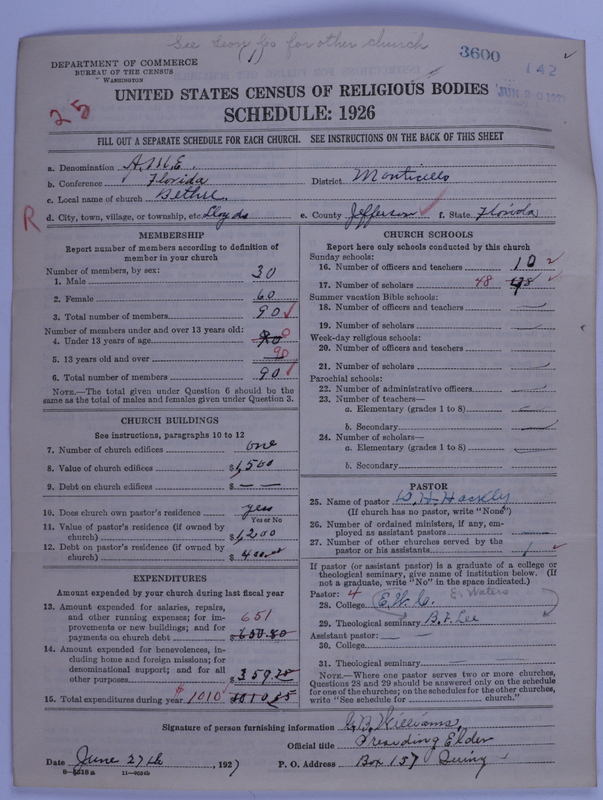 See Leon Co for other church
3600
142
DEPARTMENT OF COMMERCE
BUREAU OF THE CENSUS
WASHINGTON
25
UNITED STATES CENSUS OF RELIGIOUS BODIES
SCHEDULE: 1926
FILL OUT A SEPARATE SCHEDULE FOR EACH CHURCH. SEE INSTRUCTIONS ON THE BACK OF THIS SHEET
a. Denomination A.M.E.
b. Conference Florida District Monticello
c. Local name of church Bethel
R d. City, town, village, or township, etc Lloyds e. County Jefferson f. State Florida
MEMBERSHIP
Report number of members according to definition of
member in your church
Number of members, by sex:
1. Male 30
2. Female 60
3. Total number of members 90
Number of members under and over 13 years old:
4. Under 13 years of age 0
5. 13 years old and over 90
6. Total number of members 90
NOTE.—The total given under Question 6 should be the
same as the total of males and females given under Question 3.
CHURCH BUILDINGS
See instructions, paragraphs 10 to 12
7. Number of church edifices one
8. Value of church edifices $1,500
9. Debt on church edifices $— —
10. Does church own pastor's residence yes
Yes or No
11. Value of pastor's residence (if owned by
church) $1,200
12. Debt on pastor's residence (if owned by
church) $400.00
EXPENDITURES
Amount expended by church during last fiscal year
13. Amount expended for salaries, repairs,
and other running expenses; for im-
provements or new buildings; and for
payments on church debt 651 $650.80
14. Amount expended for benevolences, in-
cluding home and foreign missions; for
denominational support; and for all
other purposes $359.25
15. Total expenditures during year $1010
CHURCH SCHOOLS
Report here only schools conducted by this church
Sunday schools:
16. Number of officers and teachers 10
17. Number of scholars 48
Summer vacation Bible schools:
18. Number of officers and teachers
19. Number of scholars
Week-day religious schools:
20. Number of officers and teachers
21. Number of scholars
Parochial schools:
22. Number of administrative officers
23. Number of teachers—
a. Elementary (grades 1 to 8)
b. Secondary
24. Number of scholars—
a. Elementary (grades 1 to 8)
b. Secondary
PASTOR
25. Name of pastor W. H. Hackly
(If church has no pastor, write "None")
26. Number of ordained ministers, if any, em-
ployed as assistant pastors
27. Number of other churches served by the
pastor or his assistants 1
If pastor (or assistant pastor) is a graduate of a college or
theological seminary, give name of institution below. (If
not a graduate, write "No" in the space indicated.)
Pastor: 4
28. College E.W.C. E. Waters
29. Theological seminary B. F. Lee
Assistant pastor: — —
30. College
31. Theological seminary — —
NOTE.—Where one pastor serves two or more churches,
Questions 28 and 29 should be answered only on the schedule
for one of the churches; on the schedules for the other churches,
write "See schedule for church."
Signature of person furnishing information Williams
Official title Presiding Elder
Date June 27th, 1927 P. O. Address Box 157 Quincy
8-5518a 11-9024b